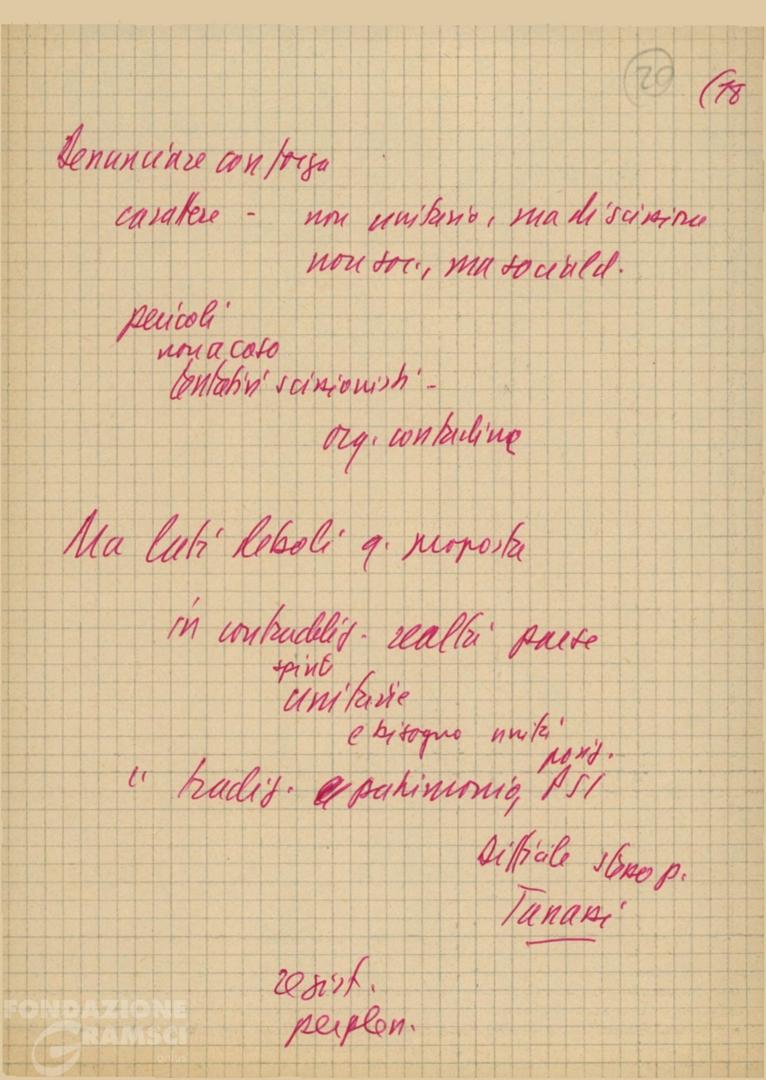 20
(18
Denunciare con forza
carattere - non unitario, ma di scissione
non soc., ma sociald.
pericoli
non a caso
tentativi scissionisti -
org. contadine
Ma lati deboli q. proposta
in contraddiz. realtà paese
spinte
unitarie
e bisogno unità
posiz.
" tradiz. e patrimonio, PSI
Difficile stesso p.
Tanassi
resist.
perpless.
FONDAZIONE
GRAMSCI